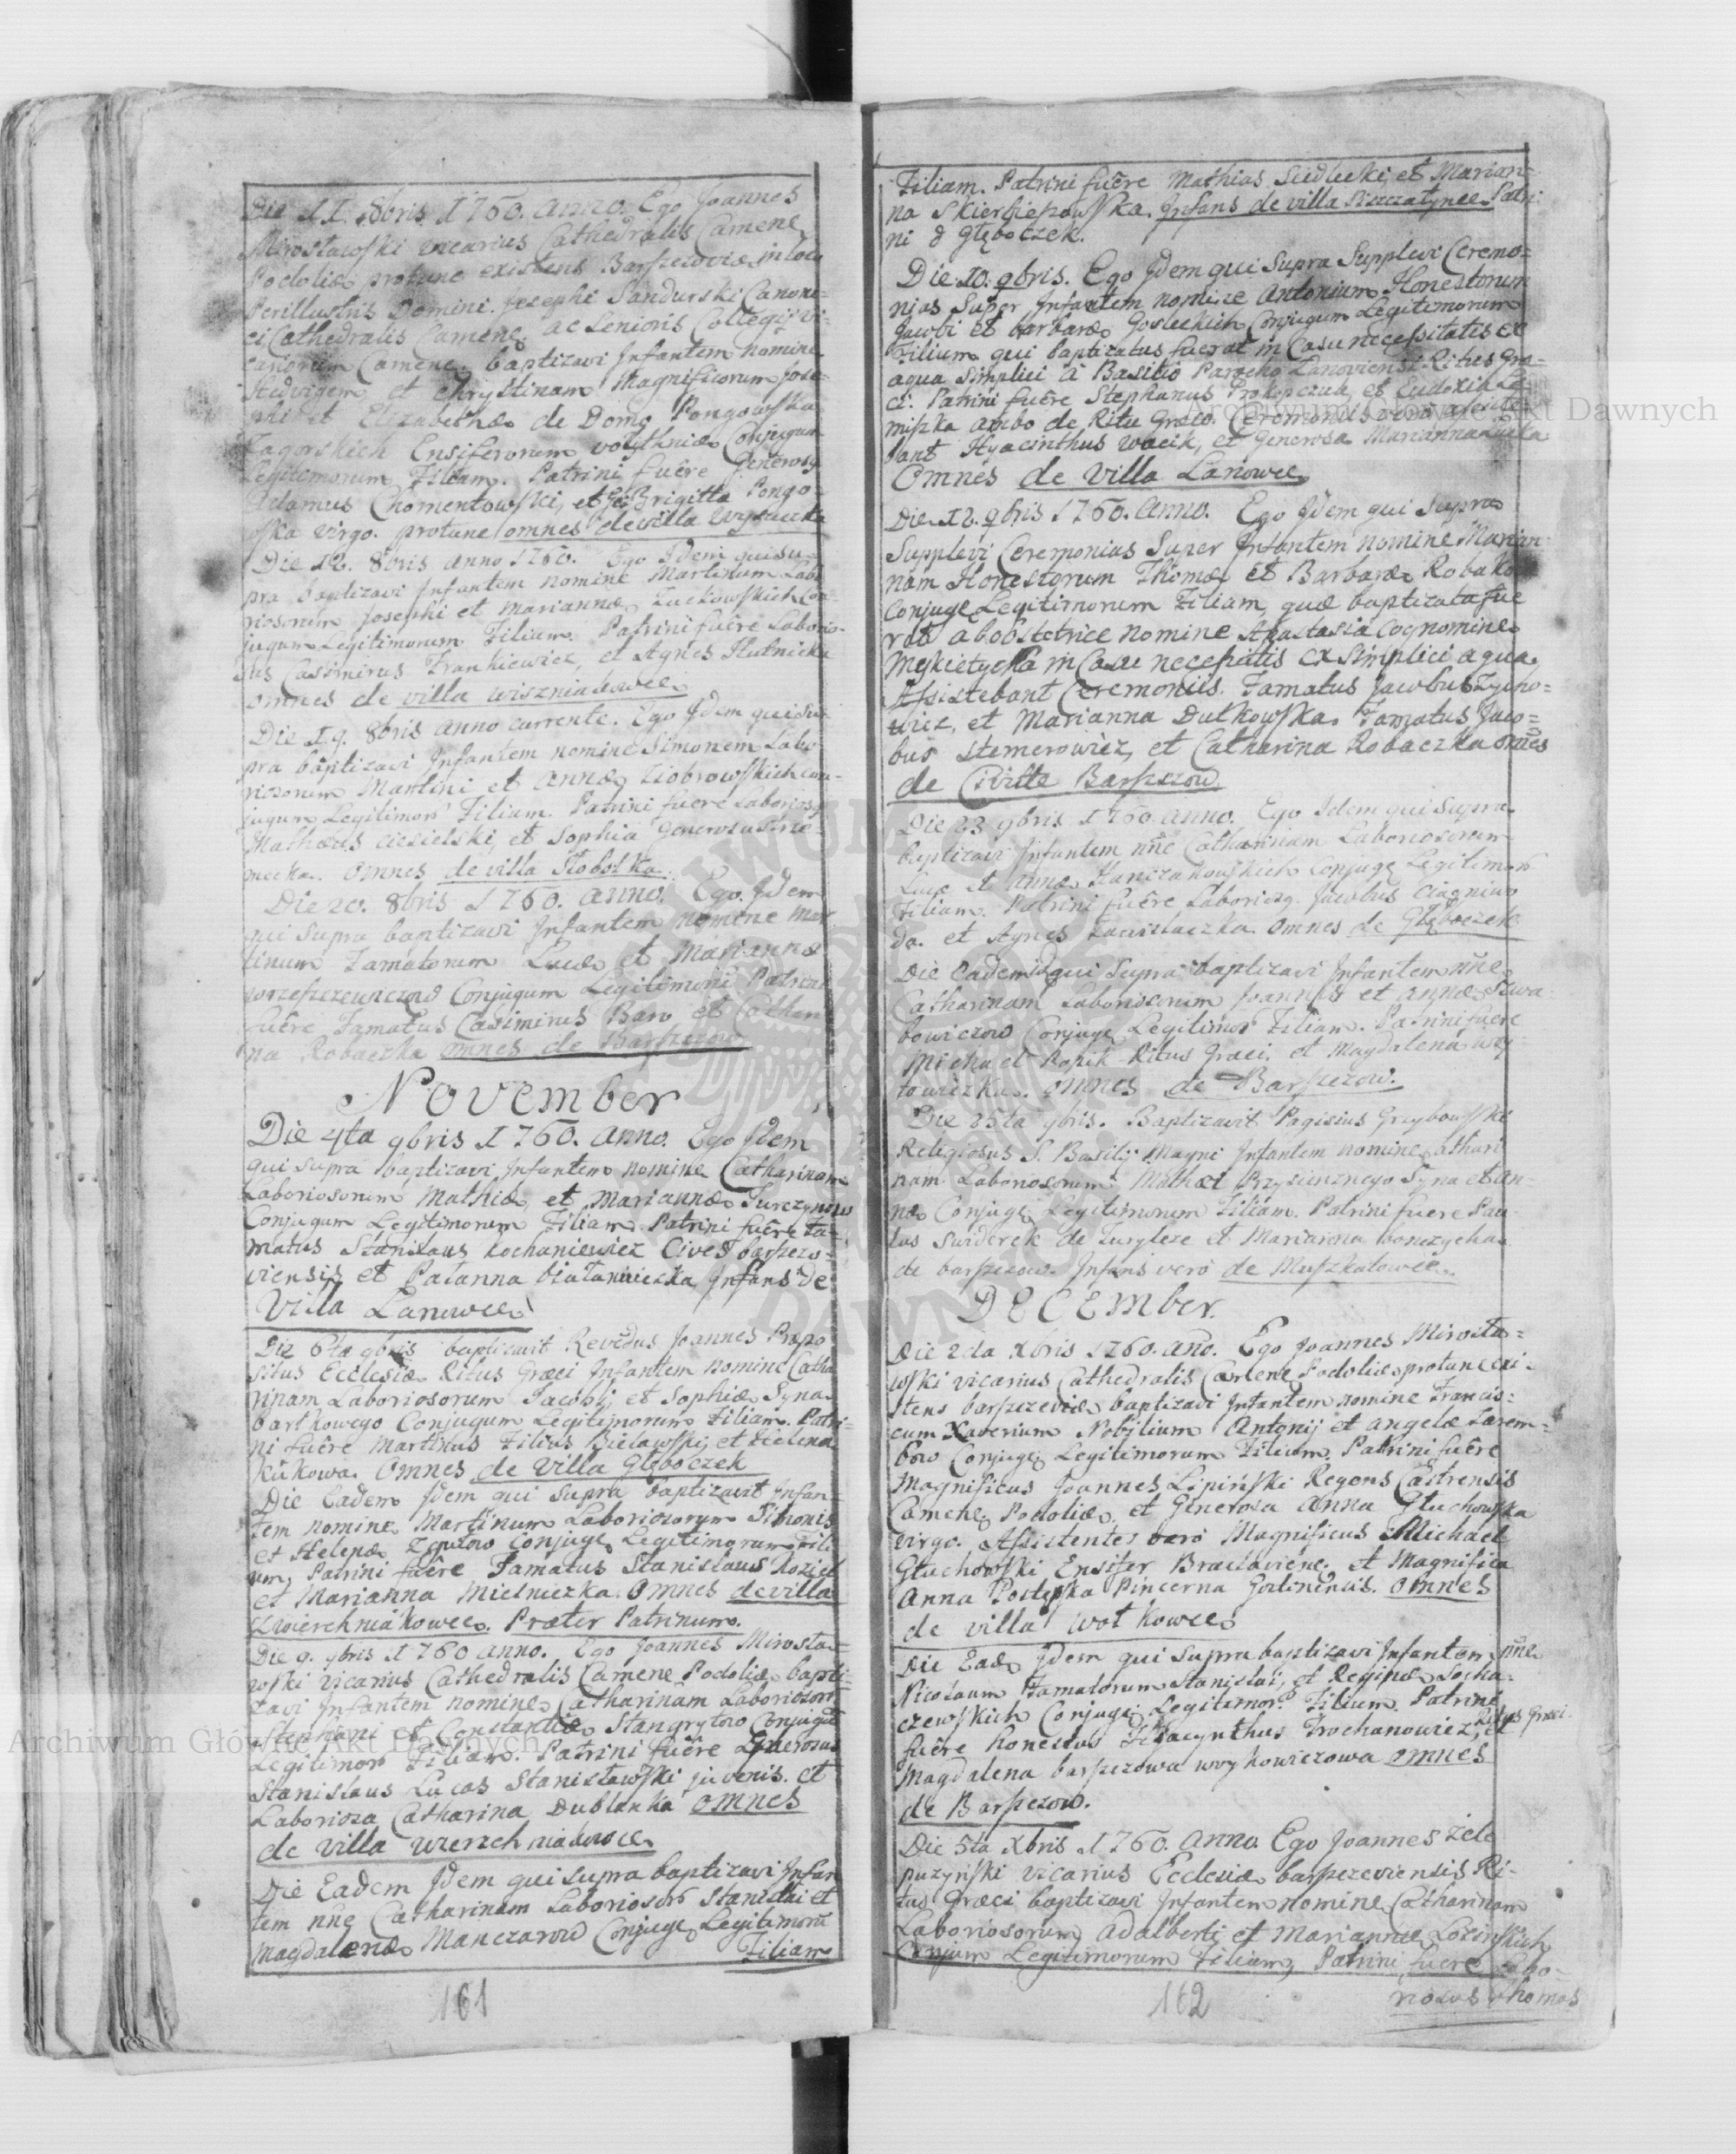 Die 11. 8bris 1760. Anno. Ego Joannes
Mirosławski vicarius Cathedralis Camene
Podoliæ protunc existens Barszczoviæ in loco
Perillustris Domini. Josephi Sandurski Canoni-
ci Cathedralis Camene ac Senioris Collegij Vi-
cariorum Camene. baptizavi Infantem nomine
Hedvigem et Chrystinam Magnificorum Jose-
phi et Elizabethæ de Domo Pongowska
Zagorskich Ensiferorum Volythniæ Conjugum
Legitimorum Filiam. Patrini fuêre Generosg
Adamus Chomentowski, et Brigitta Pongo-
wska virgo. protunc omnes de villa Wysuczka
Die 12. 8bris Anno 1760. Ego Idem qui su-
pra baptizavi Infantem nomine Martinum Labo-
riosorum Josephi et Mariannæ Zuckowskich Con-
jugum Legitimorum Filium. Patrini fuêre Laborio-
sus Casimirus Frankiewicz, et Agnes Hutnicka
omnes de villa Wiszniakowce
Die 19. 8bris anno currente. Ego Idem qui su-
pra baptizavi Infantem nomine Simonem Labo
riosorum Martini et Annæ Ziobrowskich con-
jugum Legitimor Filium. Patrini fuêre Laboriosg
Mathæus Ciesielski, et Sophia Generosa Strze-
mecka. omnes de villa Kobolka.
Die 20. 8bris 1760. Anno. Ego Idem
qui supra baptizavi Infantem nomine Mar
tinum Famatorum Lucæ et Mariannæ
Conjugum Legitimorū Patrini
fuêre Famatus Casimirus Baro et Cathari
na Robaczka omnes de Barszczow
November
Die 4ta 9bris 1760. Anno. Ego Idem
qui supra baptizavi Infantem nomine Catharinam
Laboriosorum Mathiæ et Mariannæ Jurczynow
Conjugum Legitimorum Filiam. Patrini fuêre Fa-
matus Stanislaus Kochaniewicz Cives barszczo-
viensis et Paranna białanieczka Infans de
Villa Lanowce
Die 6ta 9bris baptizavit Revēdus Joannes Præpo
situs Ecclesiæ Ritus Græci Infantem nomine Catha
rinam Laboriosorum Jacobi et Sophiæ Syna
bartkowego Conjugum Legitimorum Filiam. Patri-
ni fuêre Martinus Filius Bielawski, et Helena
Kukowa. Omnes de Villa Głęboczek
Die Eadem Idem qui supra baptizavit Infan-
tem nomine Martinum Laboriosorum Simonis
et Helenæ Conjuge Legitimorum Fili
um, Patrini fuêre Famatus Stanislaus Koziel
et Marianna Mielniczka. Omnes de villa
Zwierchniakowce. Præter Patrinum.
Die 9. 9bris 1760 anno. Ego Joannes Mirosła-
wski vicarius Cathedralis Camene Podoliæ bapti-
zavi Infantem nomine Catharinam Laboriosorū
Stephani et Constantiæ Stangrytow Conjugū
Legitimor Filiam. Patrini fuêre Generosus
Stanislaus Lucas Stanisławski juvenis. et
Laboriosa Catharina Dublanka omnes
de villa Wierzchniakowce
Die Eadem Idem qui supra baptizavi Infan
tem nñe Catharinam Laboriosorū Stanislai et
Magdalenæ Manczarow Conjuge Legitimorū
Filiam
161
Filiam. Patrini fuêre Mathias Siedlecki, et Marian-
na Skierbiezowska. Infans de villa Strzałynce Patri
ni d Głęboczek.
Die 10. 9bris. Ego Idem qui supra Supplevi Ceremo-
nias Super Infantem nomine Antonium Honestorum
Jacobi et Barbaræ Gosleckich Conjugum Legitimorum
Filium qui baptizatus fuerat in Casu necessitatis ex
aqua Simplici à Basilio Parocho Lanoviensi Ritus Græ-
ci. Patrini fuêre Stephanus Prokopczuk et Eudoxia Se-
miszka ambo de Ritu Græco. Ceremoniis vero assiste-
bant Hyacinthus Wacik, et Generosa Marianna
Omnes de villa Lanowce
Die 12. 9bris 1760. Anno. Ego Idem qui Supra
Supplevi Ceremonias Super Infantem nomine Marian-
nam Honestorum Thomæ et Barbaræ Robakow
Conjuge Legitimorum Filiam, quæ baptizata fue
rat ab obstetrice nomine Anastasia Cognomine
in Casu necessitatis ex Simplici aqua.
Assistebant Ceremoniis. Famatus Jacobus Zycho-
wicz, et Marianna Dulkowska. Famatus Jaco-
bus Stemerowicz, et Catharina Robaczka omēs
de Civitte Barszczow
Die 23 9bris 1760. anno. Ego Idem qui supra
baptizavi Infantem nñe Catharinam Laboriosorum
Lucæ et Annæ Hanczakowskich Conjuge Legitimorū
Filiam. Patrini fuêre Laboriosg. Jacobus Ciągniwo
da. et Agnes omnes de Głęboczek
Die Eadem id qui Supra baptizavi Infantem nñe
Catharinam Laboriosorum Joannis et Annæ Szwa-
bowiczow Conjuge Legitimor Filiam. Patrini fuêre
Michael Kopik Ritus Græci, et Magdalena Woy-
towiczka. omnes de Barszczow.
Die 25ta 9bris. Baptizavit Pagisius Grzybowski
Religiosus S. Basilij Magni Infantem nomine Cathari
nam Laboriosorum Mathæi Przysieznego Syna et An-
næ Conjuge Legitimorum Filiam. Patrini fuere Pau-
lus Swiderek de Juryleze et Marianna bonczycha
de barszczow. Infans vero de Muszkatowce
DECEMber.
Die 2da Xbris 1760. año. Ego Joannes Mirosła-
wski vicarius Cathedralis Camene Podoliæ protunc exi-
stens barszczoviæ baptizavi Infantem nomine Francis-
cum Xaverium Nobilium Antonij et Angelæ Zarem-
bow Conjuge Legitimorum Filium. Patrini fuêre
Magnificus Joannes Lipiński Regens Castrensis
Camene Podoliæ. et Generosa Anna Głuchowska
virgo. Assistentes vero Magnificus Michael
Głuchowski Ensifer Braclaviene. et Magnifica
Anna Postępska Pincerna omnes
de villa Wołkowce
Die Eadē Idem qui supra baptizavi Infantem nñe
Nicolaum Famatorum Stanislai, et Reginæ Socha-
czewskich Conjuge Legitimor Filium. Patrini
fuêre honestus Hyacynthus Trochanowicz, Ritus Græci
Magdalena barszczowa woykowiczowa omnes
de Barszczow.
Die 5ta Xbris 1760. Anno. Ego Joannes Zele
puzyński vicarius Ecclesiæ barszczeviensis Ri-
tus Græci baptizavi Infantem nomine Catharinam
Laboriosorum Adalberti et Mariannæ Lozinskich
Conjum Legitimorum Filiam, Patrini fuere Labo-
riosus Thomas
162
Archiwum Główne Akt Dawnych
Archiwum Główne Akt Dawnych